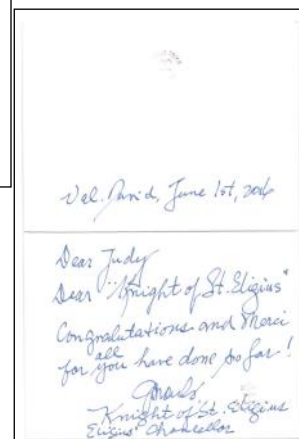 Val. David, June 1st, 2016
Dear Judy
Dear "Knight of St. Eligius"
Congralutations and Merci
for all you have done so far!
Knight of St. Eligius
Eligius' Chancellor